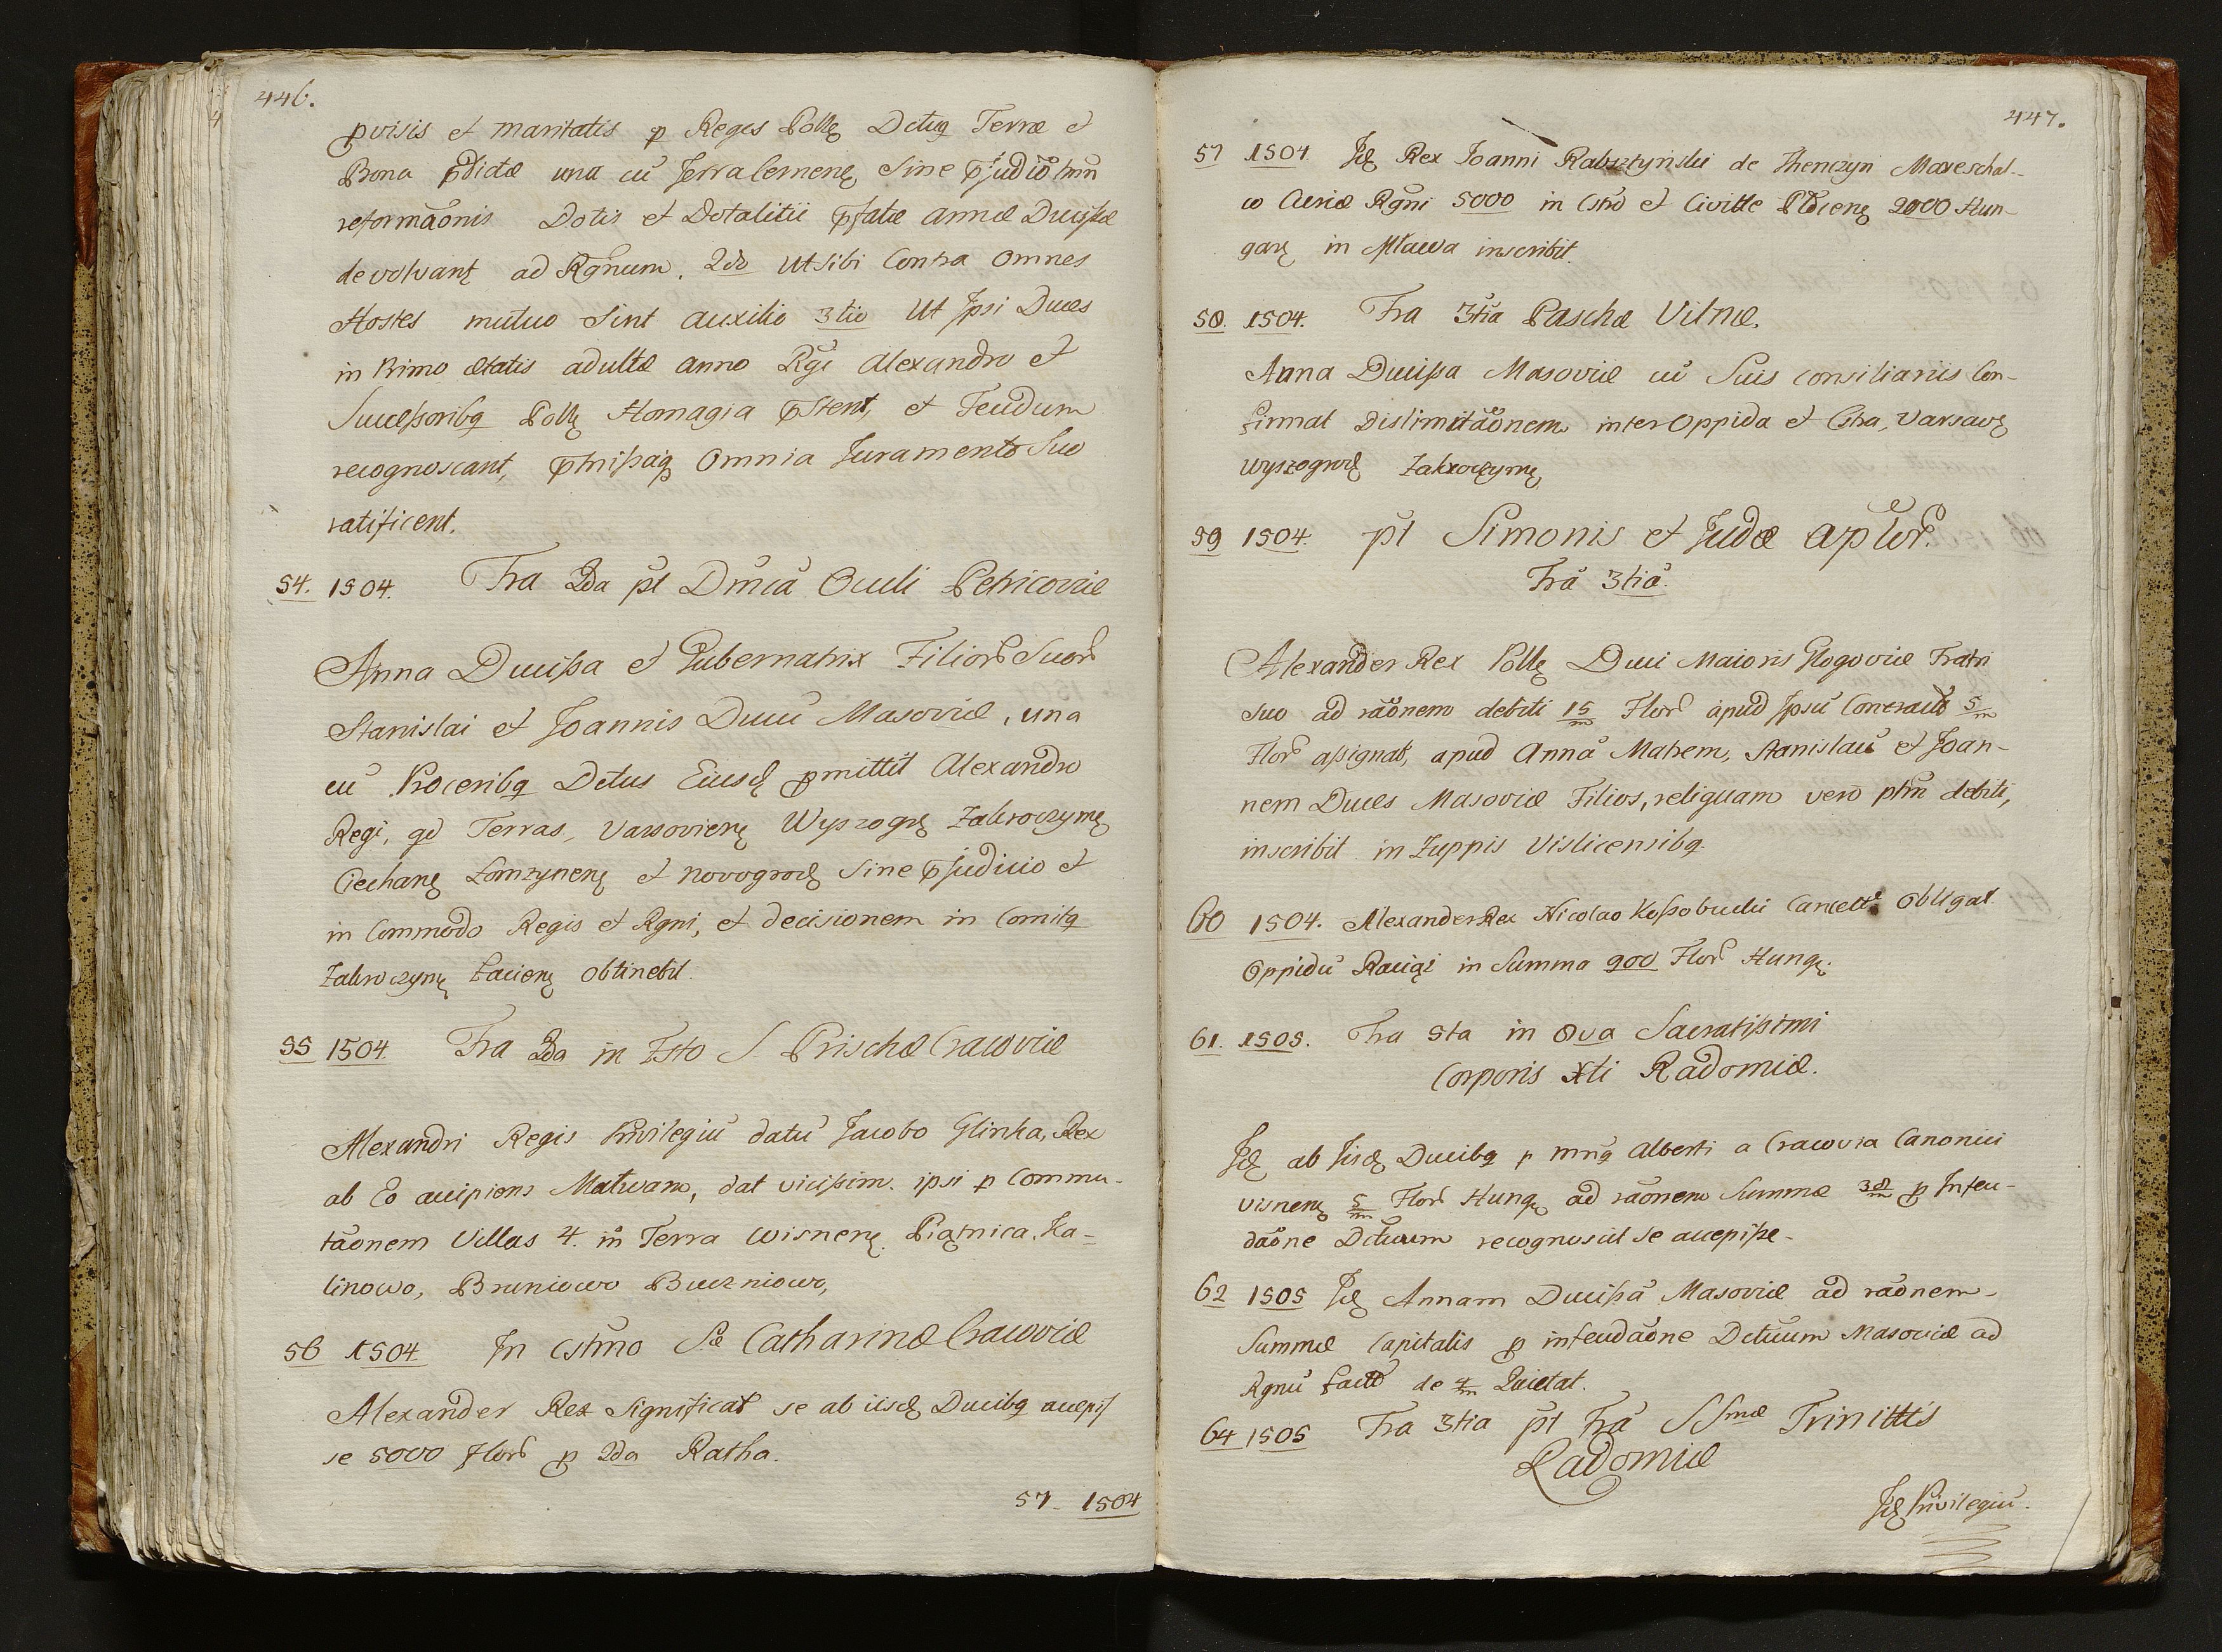 446.
pvisis et maritatis p Reges Pollę Dctuq Terræ et
Bona pdictæ una cũ Terra Cernenę Sine pjudiõ tmñ
reformãonis Dotis et Dotalitii pfatæ Annæ Ducißæ
devolvant ad Rgnum. 2do Ut Sibi Contra Omnes
Hostes mutuo Sint auxilio 3tio Ut Ipsi Duces
in Primo ætatis adultæ anno Rgi Alexandro et
Succeßoribq Pollę Homagia pstent, et Feudum
recognoscant, pmißaq Omnia Juramento Suo
ratificent.
54. 1504. Fra 2da pt Dmcã Oculi Petricoviæ
Anna Ducißa et Gubernatrix Filior Suor
Stanislai et Joannis Ducũ Masoviæ, una
cũ Proceribq Dctus Eiusd pmittit Alexandro
Regi, qd Terras, Varsovienę Wyszogrę Zakroczymę
Ciechanę Łomzynenę et Novogrodę Sine pjudicio et
in Commodo Regis et Rgni, et decisionem in Comitq
Zakroczymę Facienę obtinebit.
55 1504. Fra 2da in Fsto S. Priscæ Cracoviæ
Alexandri Regis Privilegiũ datũ Jacobo Glinka, Rex
ab Eo accipiens Makwam, dat vicißim ipsi p Commu-
tãonem Villas 4. in Terra Wisnenę. Piątnica, Ka-
linowo, Bruniowo Buczniowo,
56 1504. In Cstino Sæ Catharinæ Cracoviæ
Alexander Rex Significat se ab iisd Ducibq accepis
se 5000 Flor p 2da Ratha.
57. 1504
447.
57 1504. Id Rex Joanni Rabsztyński de Thenczyn Mareschal-
co Curiæ Rgni 5000 in Cstro et Civitte Plocenę 2000 Hun-
garę in Mława inscribit.
58. 1504. Fra 3tia Paschæ Vilnæ.
Anna Ducißa Masoviæ cũ Suis consiliariis Con-
firmat Dislimitãonem inter Oppida et Cstra, Varsavę
Wyszogrodę Zakroczymę
59 1504. pt Simonis et Judæ Aplor.
Frã 3tiã.
Alexander Rex Pollę Duci Maioris Glogoviæ Fratri
Suo ad rãonem debiti 15/m Flor apud Ipsũ Contracti 5/m
Flor aßignat, apud Annã Matrem, Stanislaũ et Joan-
nem Duces Masoviæ Filios, reliquam vero ptm debiti,
inscribit in Zuppis Vislicensibq.
60 1504. Alexander Rex Nicolao Koßobucki Cancell Obligat
Oppidũ Raciąż in Summa 900 Flor Hungę.
61. 1505. Fra 5ta in 8va Sacratißimi
Corporis Xti Radomiæ.
Id ab Iisd Ducibq p mnq Alberti a Cracovia Canonici
Visnenę 5/m Flor Hungę ad rãonem Summæ 30/m p Infeu-
dãone Dctuum recognoscit Se accepiße.
62 1505 Id Annam Ducißã Masoviæ ad rãonem
Summæ Capitalis p infeudãone Dctuum Masoviæ ad
Rgnũ facto de 4/m Quietat.
64 1505 Fra 3tia pt Frã SSmæ Trinittis
Radomiæ
Id Privilegiũ.